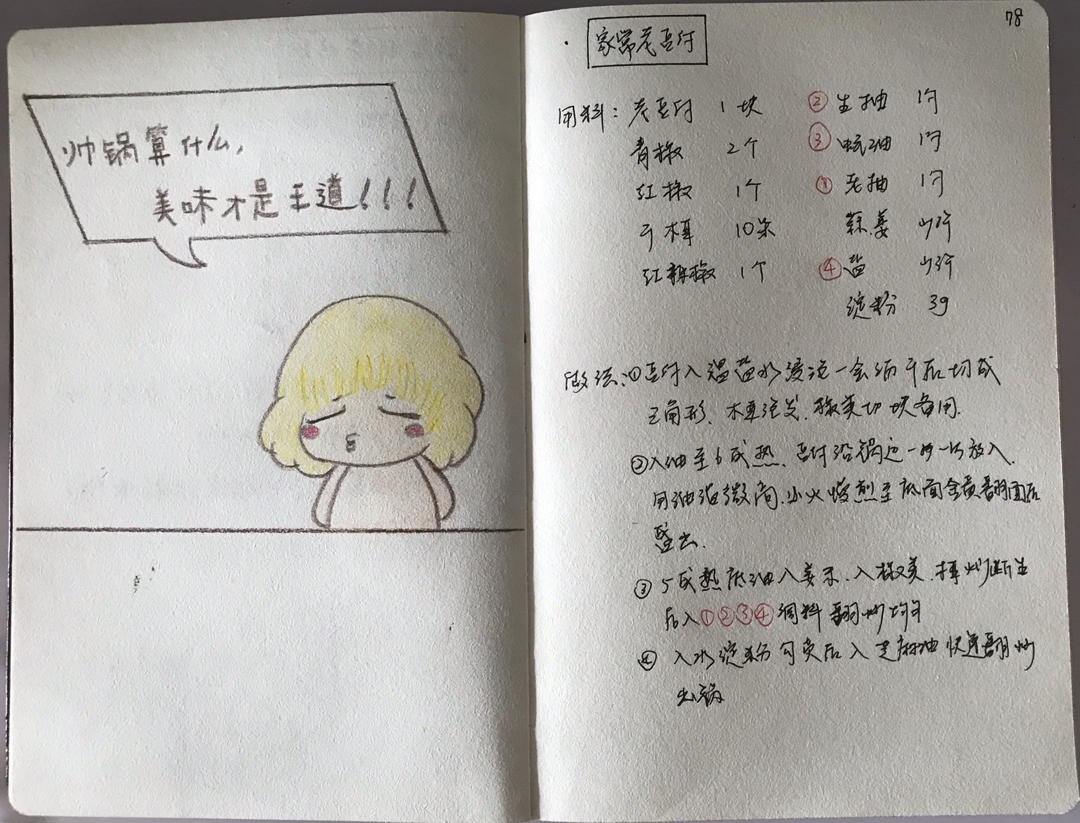 帅锅算什么,
美味才是王道!!!
78
家常老豆付
用料: 老豆付 1块 ② 生抽 1勺
青椒 2个 ③ 蚝油 1勺
红椒 1个 ① 老抽 1勺
干木耳 10朵 蒜姜 少许
红辣椒 1个 ④ 盐 少许
淀粉 3g
做法:①豆付入温盐水浸泡一会沥干后切成
三角形、木耳泡发、椒类切块备用.
②入油至6成热、豆付沿锅边一块一块放入、
用油溜微间、小火慢煎至底面金黄翻面后
盛出.
③ 5成热底油入姜末、入椒类、木耳炒断生
后入①②③④调料翻炒均匀
④ 入水淀粉勾芡后入芝麻油快速翻炒
出锅